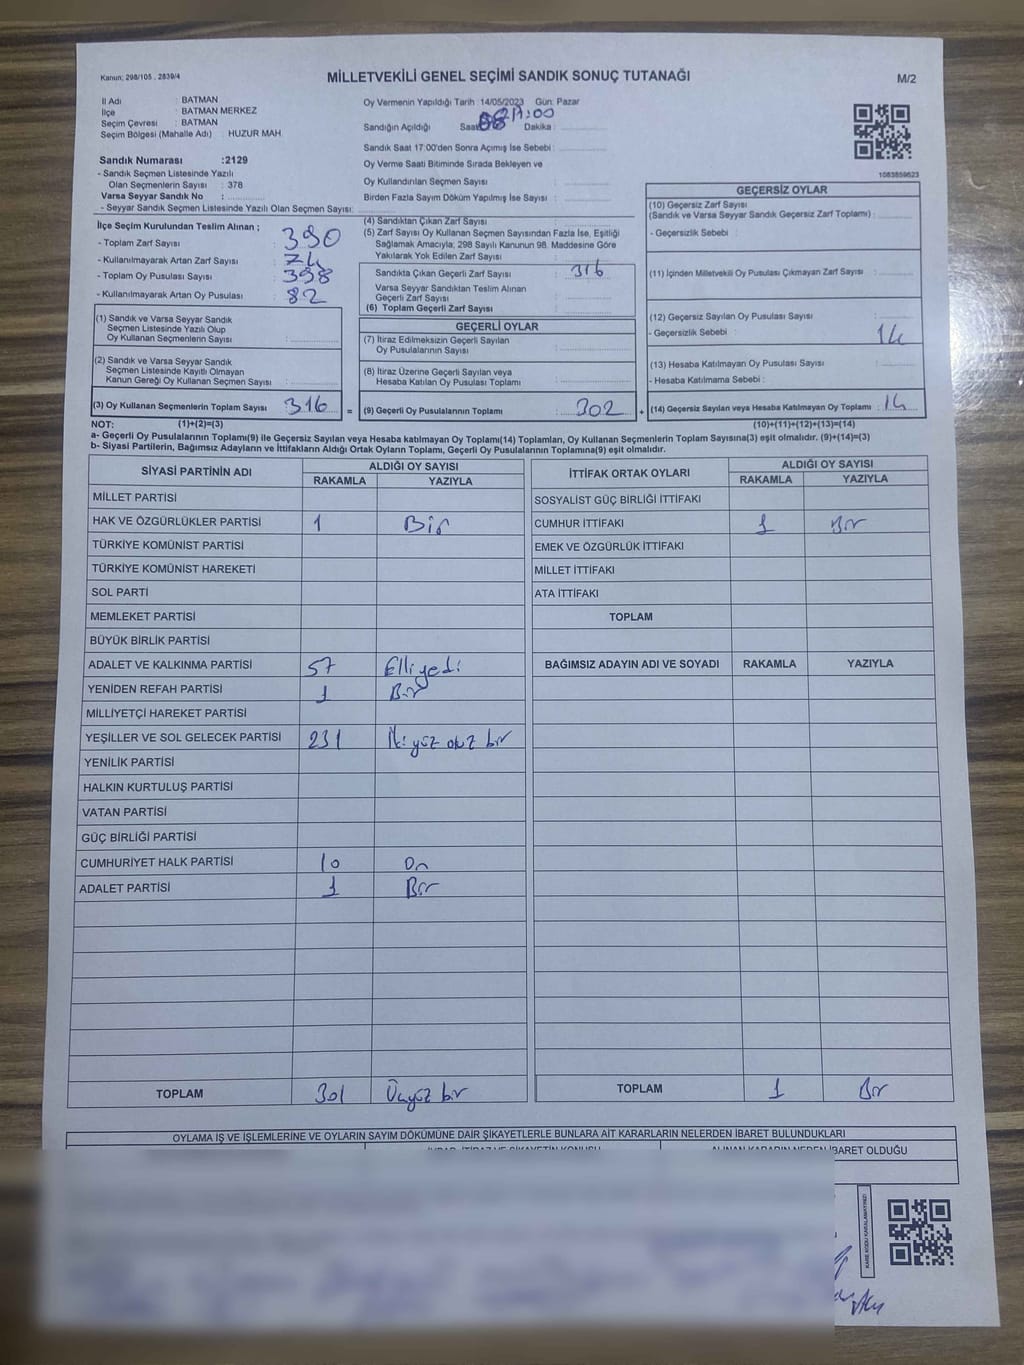 Kanun; 298/105 , 2839/4
MİLLETVEKİLİ GENEL SEÇİMİ SANDIK SONUÇ TUTANAĞI
M/2
İl Adı : BATMAN
İlçe : BATMAN MERKEZ
Seçim Çevresi : BATMAN
Seçim Bölgesi (Mahalle Adı) : HUZUR MAH.
Sandık Numarası :2129
- Sandık Seçmen Listesinde Yazılı
Olan Seçmenlerin Sayısı : 378
Varsa Seyyar Sandık No :
- Seyyar Sandık Seçmen Listesinde Yazılı Olan Seçmen Sayısı:
Oy Vermenin Yapıldığı Tarih :14/05/2023 Gün: Pazar
Sandığın Açıldığı Saat 17:00 Dakika :
Sandık Saat 17:00'den Sonra Açılmış İse Sebebi :
Oy Verme Saati Bitiminde Sırada Bekleyen ve
Oy Kullandırılan Seçmen Sayısı :
Birden Fazla Sayım Döküm Yapılmış İse Sayısı :
1083859623
İlçe Seçim Kurulundan Teslim Alınan ;
- Toplam Zarf Sayısı : 390
- Kullanılmayarak Artan Zarf Sayısı : 74
- Toplam Oy Pusulası Sayısı : 398
- Kullanılmayarak Artan Oy Pusulası : 82
(1) Sandık ve Varsa Seyyar Sandık
Seçmen Listesinde Yazılı Olup
Oy Kullanan Seçmenlerin Sayısı :
(2) Sandık ve Varsa Seyyar Sandık
Seçmen Listesinde Kayıtlı Olmayan
Kanun Gereği Oy Kullanan Seçmen Sayısı :
(3) Oy Kullanan Seçmenlerin Toplam Sayısı : 316 =
(4) Sandıktan Çıkan Zarf Sayısı :
(5) Zarf Sayısı Oy Kullanan Seçmen Sayısından Fazla İse, Eşitliği
Sağlamak Amacıyla, 298 Sayılı Kanunun 98. Maddesine Göre
Yakılarak Yok Edilen Zarf Sayısı :
Sandıkta Çıkan Geçerli Zarf Sayısı : 316
Varsa Seyyar Sandıktan Teslim Alınan
Geçerli Zarf Sayısı :
(6) Toplam Geçerli Zarf Sayısı :
GEÇERLİ OYLAR
(7) İtiraz Edilmeksizin Geçerli Sayılan
Oy Pusulalarının Sayısı :
(8) İtiraz Üzerine Geçerli Sayılan veya
Hesaba Katılan Oy Pusulası Toplamı :
(9) Geçerli Oy Pusulalarının Toplamı : 302 +
GEÇERSİZ OYLAR
(10) Geçersiz Zarf Sayısı
(Sandık ve Varsa Seyyar Sandık Geçersiz Zarf Toplamı) :
- Geçersizlik Sebebi :
(11) İçinden Milletvekili Oy Pusulası Çıkmayan Zarf Sayısı :
(12) Geçersiz Sayılan Oy Pusulası Sayısı :
- Geçersizlik Sebebi : 14
(13) Hesaba Katılmayan Oy Pusulası Sayısı :
- Hesaba Katılmama Sebebi :
(14) Geçersiz Sayılan veya Hesaba Katılmayan Oy Toplamı : 14
NOT: (1)+(2)=(3)
(10)+(11)+(12)+(13)=(14)
a- Geçerli Oy Pusulalarının Toplamı(9) ile Geçersiz Sayılan veya Hesaba katılmayan Oy Toplamı(14) Toplamları, Oy Kullanan Seçmenlerin Toplam Sayısına(3) eşit olmalıdır. (9)+(14)=(3)
b- Siyasi Partilerin, Bağımsız Adayların ve İttifakların Aldığı Ortak Oyların Toplamı, Geçerli Oy Pusulalarının Toplamına(9) eşit olmalıdır.
SİYASİ PARTİNİN ADI ALDIĞI OY SAYISI
RAKAMLA YAZIYLA
MİLLET PARTİSİ
HAK VE ÖZGÜRLÜKLER PARTİSİ 1 Bir
TÜRKİYE KOMÜNİST PARTİSİ
TÜRKİYE KOMÜNİST HAREKETİ
SOL PARTİ
MEMLEKET PARTİSİ
BÜYÜK BİRLİK PARTİSİ
ADALET VE KALKINMA PARTİSİ 57 Elliyedi
YENİDEN REFAH PARTİSİ 1 Bir
MİLLİYETÇİ HAREKET PARTİSİ
YEŞİLLER VE SOL GELECEK PARTİSİ 231 İkiyüz otuz bir
YENİLİK PARTİSİ
HALKIN KURTULUŞ PARTİSİ
VATAN PARTİSİ
GÜÇ BİRLİĞİ PARTİSİ
CUMHURİYET HALK PARTİSİ 10 On
ADALET PARTİSİ 1 Bir
TOPLAM 301 Üçyüz bir
İTTİFAK ORTAK OYLARI ALDIĞI OY SAYISI
RAKAMLA YAZIYLA
SOSYALİST GÜÇ BİRLİĞİ İTTİFAKI
CUMHUR İTTİFAKI 1 Bir
EMEK VE ÖZGÜRLÜK İTTİFAKI
MİLLET İTTİFAKI
ATA İTTİFAKI
TOPLAM
BAĞIMSIZ ADAYIN ADI VE SOYADI RAKAMLA YAZIYLA
TOPLAM 1 Bir
OYLAMA İŞ VE İŞLEMLERİNE VE OYLARIN SAYIM DÖKÜMÜNE DAİR ŞİKAYETLERLE BUNLARA AİT KARARLARIN NELERDEN İBARET BULUNDUKLARI
İBARET OLDUĞU
KARE KODU KARALAMAYINIZ!